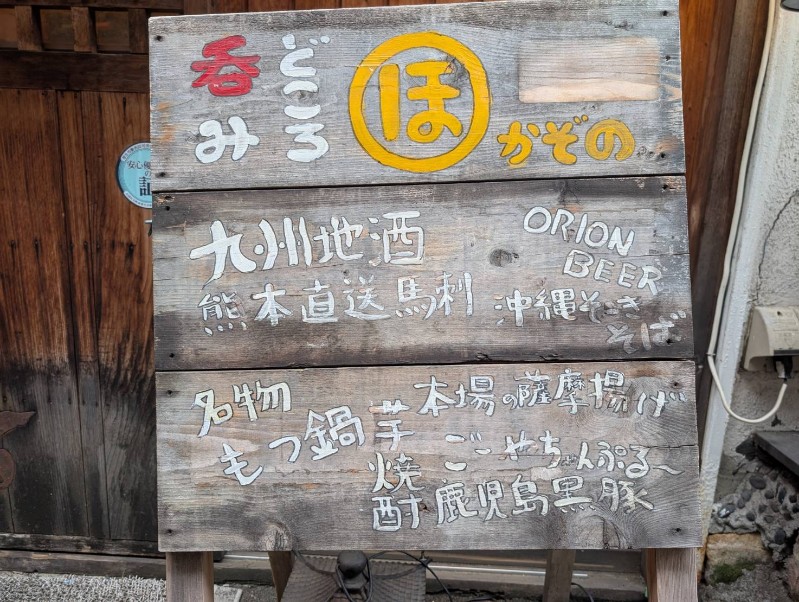 呑みどころ ほ かぞの
九州地酒
ORION
BEER
熊本直送馬刺
沖縄そーき
そば
名物
もつ鍋
芋焼酎
本場の薩摩揚げ
ごーやちゃんぷる〜
鹿児島黒豚
安心